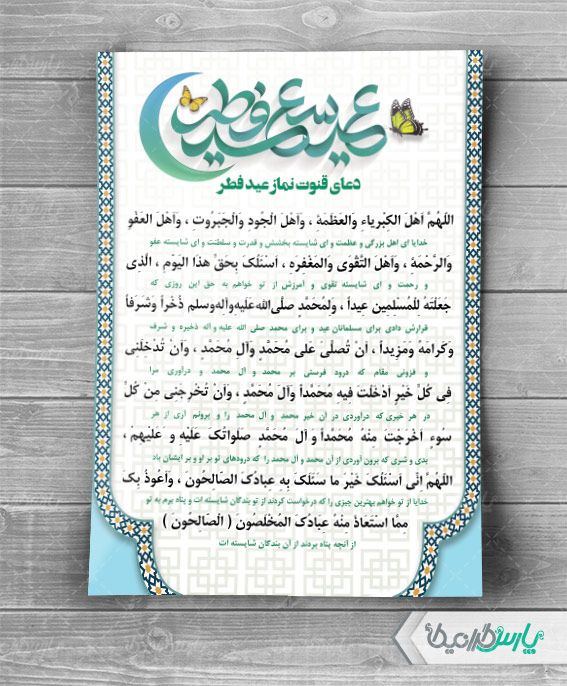 عید سعید فطر
دعای قنوت نماز عید فطر
اَللّهُمَّ اَهْلَ الْكِبْرِياءِ وَالْعَظَمَةِ ، وَاَهْلَ الْجُودِ وَالْجَبَرُوتِ ، وَاَهْلَ الْعَفْوِ
خدایا ای اهل بزرگی و عظمت و ای شایسته بخشش و قدرت و سلطنت و ای شایسته عفو
وَالرَّحْمَةِ ، وَاَهْلَ التَّقْوى وَالْمَغْفِرَهِ ، اَسْئَلُكَ بِحَقِّ هذَا الْيَومِ ، الَّذى
و رحمت و ای شایسته تقوی و آمرزش از تو خواهم به حق این روزی که
جَعَلْتَهُ لِلْمُسْلِمينَ عيداً ، وَلِمُحَمَّدٍ صَلَّى اللهُ عَلَيهِ وَآلِهِ وسلم ذُخْراً وَشَرَفاً
قرارش دادی برای مسلمانان عید و برای محمد صلی الله علیه و آله ذخیره و شرف
وَكَرامَةً وَمَزيداً ، اَنْ تُصَلِّىَ عَلى مُحَمَّدٍ وَآلِ مُحَمَّدٍ ، وَاَنْ تُدْخِلَنى
و فزونی مقام که درود فرستی بر محمد و آل محمد و درآوری مرا
فى كُلِّ خَيْرٍ اَدْخَلْتَ فيهِ مُحَمَّداً وَآلَ مُحَمَّدٍ ، وَاَنْ تُخْرِجَنى مِنْ كُلِّ
در هر خیری که درآوردی در آن خیر محمد و آل محمد را و برونم آری از هر
سُوءٍ اَخْرَجْتَ مِنْهُ مُحَمَّداً وَ آلَ مُحَمَّدٍ صَلَواتُكَ عَلَيْهِ وَ عَلَيْهِمْ ،
بدی و شری که برون آوردی از آن محمد و آل محمد را که درودهای تو بر او و بر ایشان باد
اَللّهُمَّ اِنّى اَسْئَلُكَ خَيْرَ ما سَئَلَكَ بِهِ عِبادُكَ الصّالِحُونَ ، وَاَعُوذُ بِكَ
خدایا از تو خواهم بهترین چیزی را که درخواست کردند از تو بندگان شایسته ات و پناه برم به تو
مِمَّا اسْتَعاذَ مِنْهُ عِبادُكَ الْمُخْلَصُونَ ( الْصالِحُونَ )
از آنچه پناه بردند از آن بندگان شایسته ات
پارس گرافیک